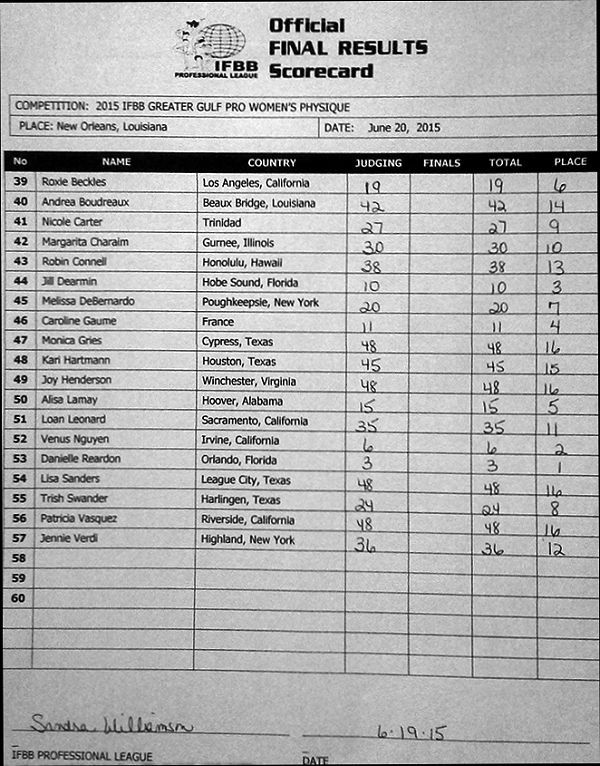 IFBB
PROFESSIONAL LEAGUE
Official
FINAL RESULTS
Scorecard
COMPETITION: 2015 IFBB GREATER GULF PRO WOMEN'S PHYSIQUE
PLACE: New Orleans, Louisiana DATE: June 20, 2015
No NAME COUNTRY JUDGING FINALS TOTAL PLACE
39 Roxie Beckles Los Angeles, California 19 19 6
40 Andrea Boudreaux Beaux Bridge, Louisiana 42 42 14
41 Nicole Carter Trinidad 27 27 9
42 Margarita Charaim Gurnee, Illinois 30 30 10
43 Robin Connell Honolulu, Hawaii 38 38 13
44 Jill Dearmin Hobe Sound, Florida 10 10 3
45 Melissa DeBernardo Poughkeepsie, New York 20 20 7
46 Caroline Gaume France 11 11 4
47 Monica Gries Cypress, Texas 48 48 16
48 Kari Hartmann Houston, Texas 45 45 15
49 Joy Henderson Winchester, Virginia 48 48 16
50 Alisa Lamay Hoover, Alabama 15 15 5
51 Loan Leonard Sacramento, California 35 35 11
52 Venus Nguyen Irvine, California 6 6 2
53 Danielle Reardon Orlando, Florida 3 3 1
54 Lisa Sanders League City, Texas 48 48 16
55 Trish Swander Harlingen, Texas 24 24 8
56 Patricia Vasquez Riverside, California 48 48 16
57 Jennie Verdi Highland, New York 36 36 12
58
59
60
Sandra Williamson 6-19-15
IFBB PROFESSIONAL LEAGUE DATE